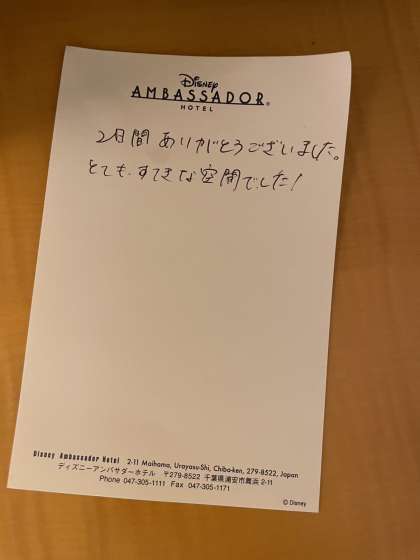 Disney
AMBASSADOR®
HOTEL
2日間 ありがとうございました。
とても、すてきな空間でした!
Disney Ambassador Hotel 2-11 Maihama, Urayasu-Shi, Chiba-ken, 279-8522, Japan
ディズニーアンバサダーホテル 〒279-8522 千葉県浦安市舞浜 2-11
Phone 047-305-1111 Fax 047-305-1171
© Disney